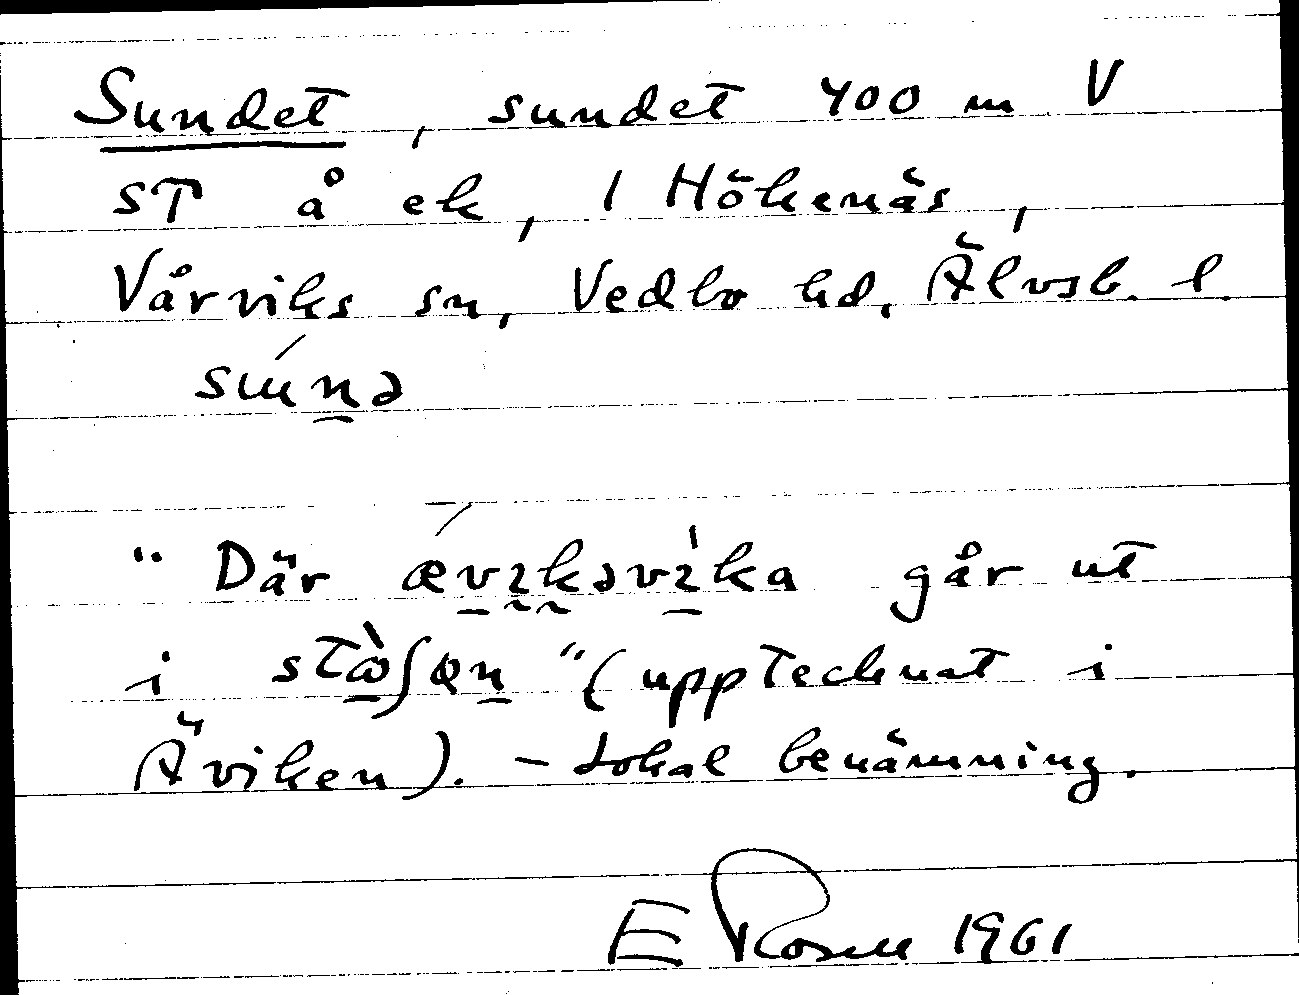 Sundet, sundet 400 m V
ST å ek, 1 Hökenäs,
Vårviks sn, Vedbo hd, Älvsb. l.
sɯ́n̠ə
"Där ǽv̠ɩkəvɩ̀ka går ut
i stⱺ̀ʃen̠" (upptecknat i
Äviken). - Lokal benämning.
E Rosell 1961